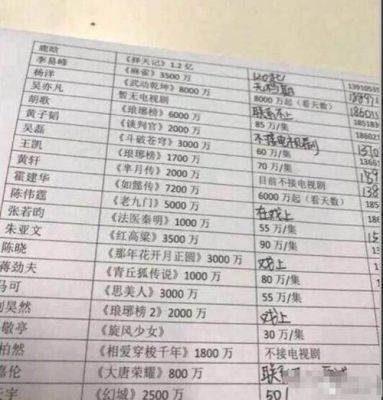 鹿晗 《择天记》1.2 亿
李易峰 《麻雀》3500 万 无档期 13910535
杨洋 《武动乾坤》8000 万 8000 万起（看天数）
吴亦凡 暂无电视剧 联系不上
胡歌 《琅琊榜》6000 万 85 万/集 185189
黄子韬 《谈判官》2000 万 不接电视剧
吴磊 《斗破苍穹》3000 万 60 万/集
王凯 《琅琊榜》1700 万 70 万/集
黄轩 《芈月传》2000 万 目前不接电视剧
霍建华 《如懿传》7200 万 6000 万起（看天数）
陈伟霆 《老九门》5000 万 在戏上
张若昀 《法医秦明》1000 万 55 万/集
朱亚文 《红高粱》3500 万 90 万/集
陈晓 《那年花开月正圆》3000 万 戏上
蒋劲夫 《青丘狐传说》1000 万 80 万/集
马可 《思美人》3000 万 55 万/集
刘昊然 《琅琊榜 2》2000 万 戏上
敬亭 《旋风少女》 30 万/集
柏然 《相爱穿梭千年》1800 万 不接电视剧
嘉伦 《大唐荣耀》800 万 联
宇 《幻城》2500 万 50